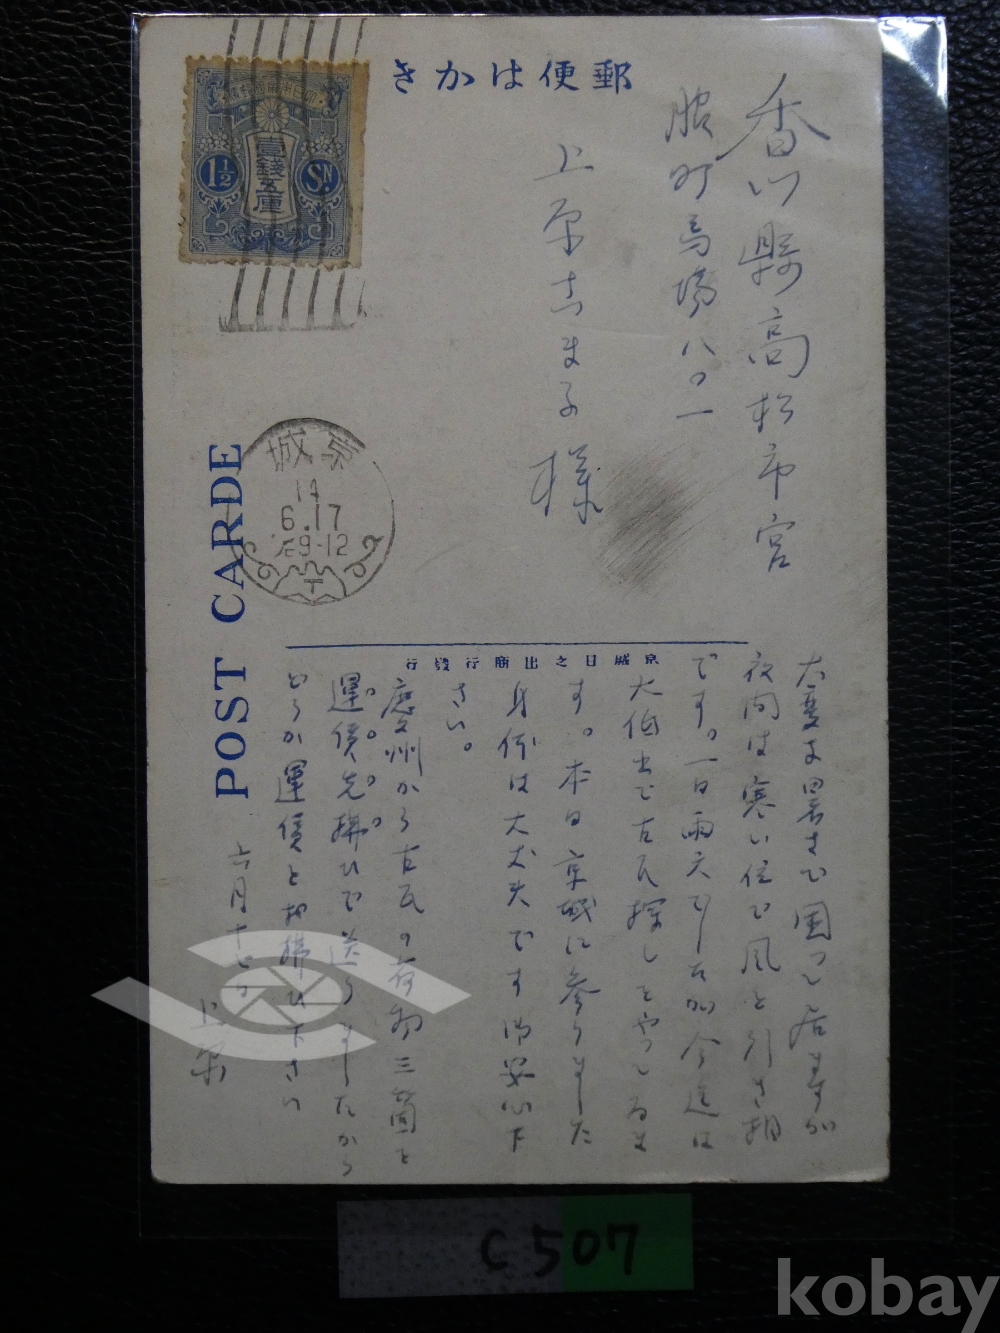 郵便はかき
大日本帝國郵便
壹錢五厘
1½
Sn
香川縣高松市宮
脇町馬場八〇一
上原さま子様
京城
14
6.17
后9-12
〒
POST CARDE
京城日之出商行發行
大変な暑さで困って居ますが
夜間は寒い位で風を引き相
です。一日雨天でしたが今迄は
大低出で古瓦探しをやってゐま
す。本日京城に参りました
身体は大丈夫です御安心下
さい。
慶州から古瓦の荷物三箇を
運債先拂ひで送りましたから
どうか運債を拂ひ下さい
六月十七日
上原
C507
kobay